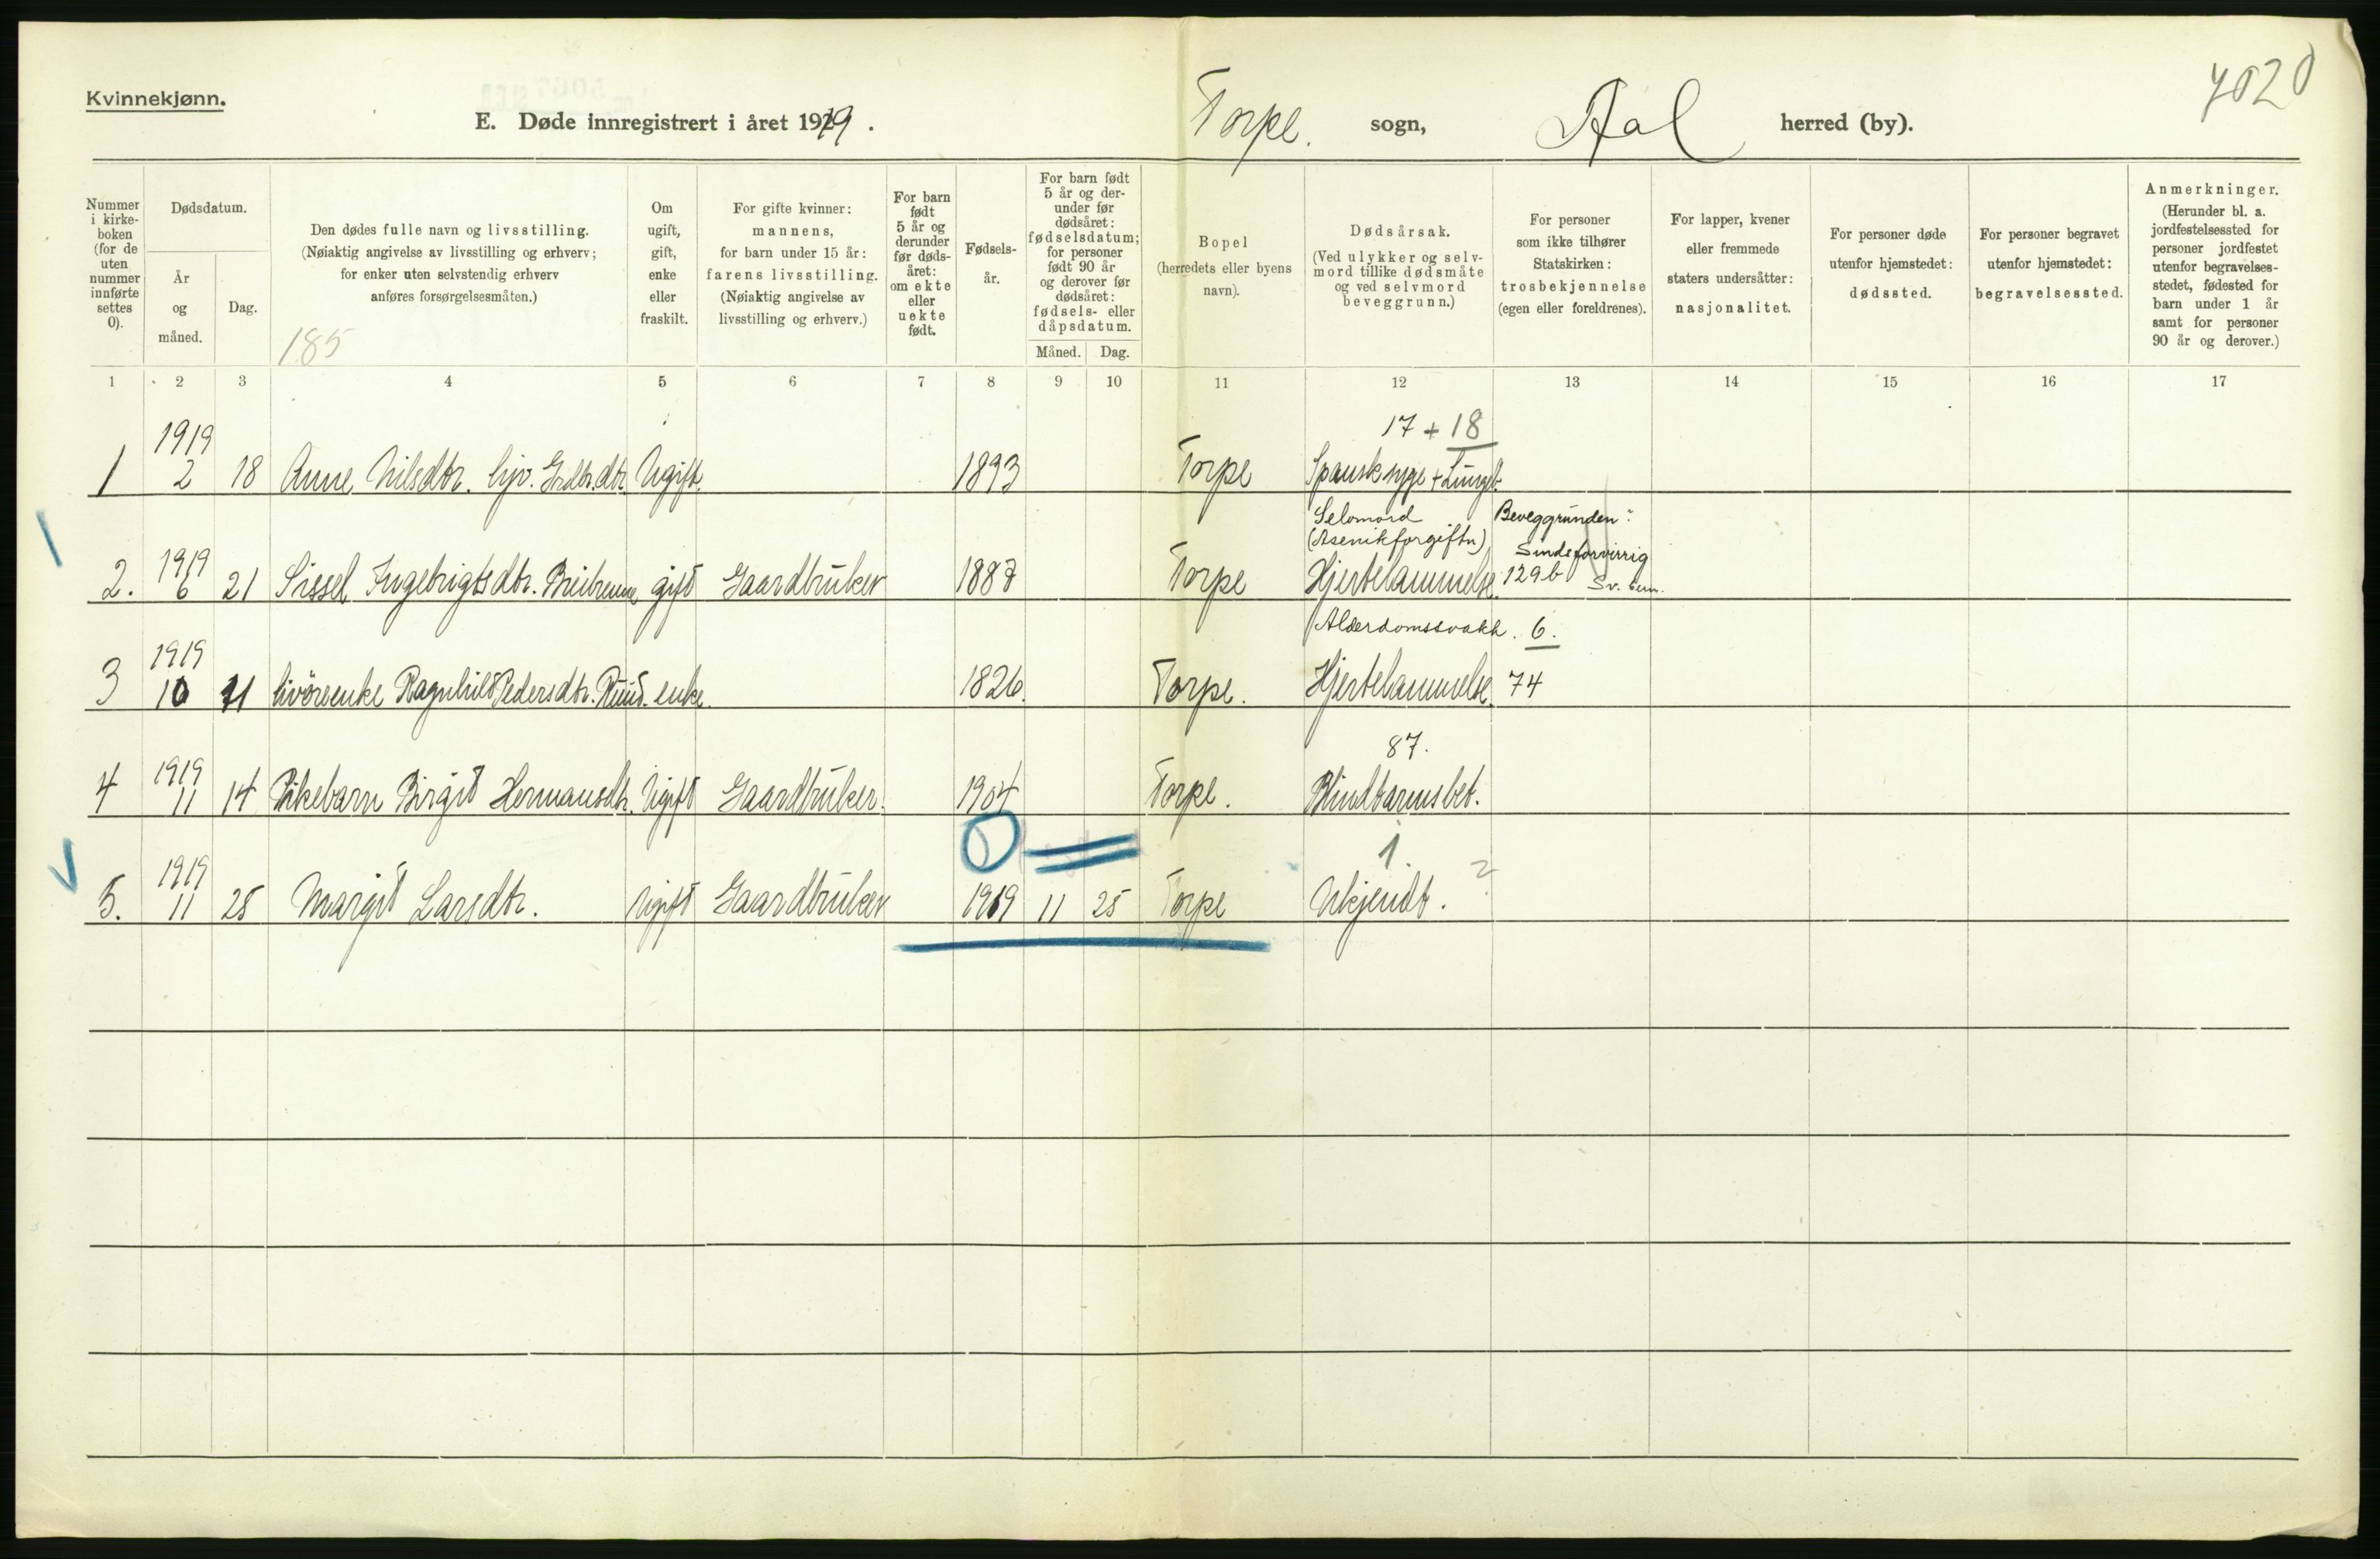 Kvinnekjønn.
E. Døde innregistrert i året 1919. Torpe. sogn, Aal herred (by).
7020
Nummer i kirke-boken (for de uten nummer innførte settes 0).
Dødsdatum.
År og måned.
Dag.
Den dødes fulle navn og livsstilling.
(Nøiaktig angivelse av livsstilling og erhverv;
for enker uten selvstendig erhverv
anføres forsørgelsesmåten.)
185
Om ugift, gift, enke eller fraskilt.
For gifte kvinner:
mannens,
for barn under 15 år:
farens livsstilling.
(Nøiaktig angivelse av
livsstilling og erhverv.)
For barn født 5 år og derunder før døds-året: om ekte eller uekte født.
Fødsels-år.
For barn født 5 år og der-under før dødsåret: fødselsdatum; for personer født 90 år og derover før dødsåret: fødsels- eller dåpsdatum.
Måned. Dag.
Bopel
(herredets eller byens
navn).
Dødsårsak.
(Ved ulykker og selv-
mord tillike dødsmåte
og ved selvmord
beveggrunn.)
For personer
som ikke tilhører
Statskirken:
trosbekjennelse
(egen eller foreldrenes).
For lapper, kvener
eller fremmede
staters undersåtter:
nasjonalitet.
For personer døde
utenfor hjemstedet:
dødssted.
For personer begravet
utenfor hjemstedet:
begravelsessted.
Anmerkninger.
(Herunder bl. a.
jordfestelsessted for
personer jordfestet
utenfor begravelses-
stedet, fødested for
barn under 1 år
samt for personer
90 år og derover.)
1 2 3 4 5 6 7 8 9 10 11 12 13 14 15 16 17
17 + 18
1 1919 2 18 Anne Nilsdtr. hjv. Grdbr. dtr. Ugift. 1893 Torpe Spansksyge + Lungeb.
Selvmord Beveggrunden:
(Asenikforgiftn) Sindsforvirrig
2. 1919 6 21 Sissel Ingebrigtsdtr. gift Gaardbruker 1887 Torpe Hjertelammelse. 129b Sv. bem.
Alderdomssvakh. 6.
3 1919 10 Ragnhild Pedersdtr. Ruud. enke. 1826. Torpe. Hjertelammelse. 74
87.
4 1919 11 14 Pikebarn Birgit Hermansdtr. Ugift Gaardbruker. 1904 Torpe. Blindtarmsbet.
1.
5. 1919 11 28 Margit Larsdtr. Ugift Gaardbruker 1919 11 25 Torpe Ukjendt. ?